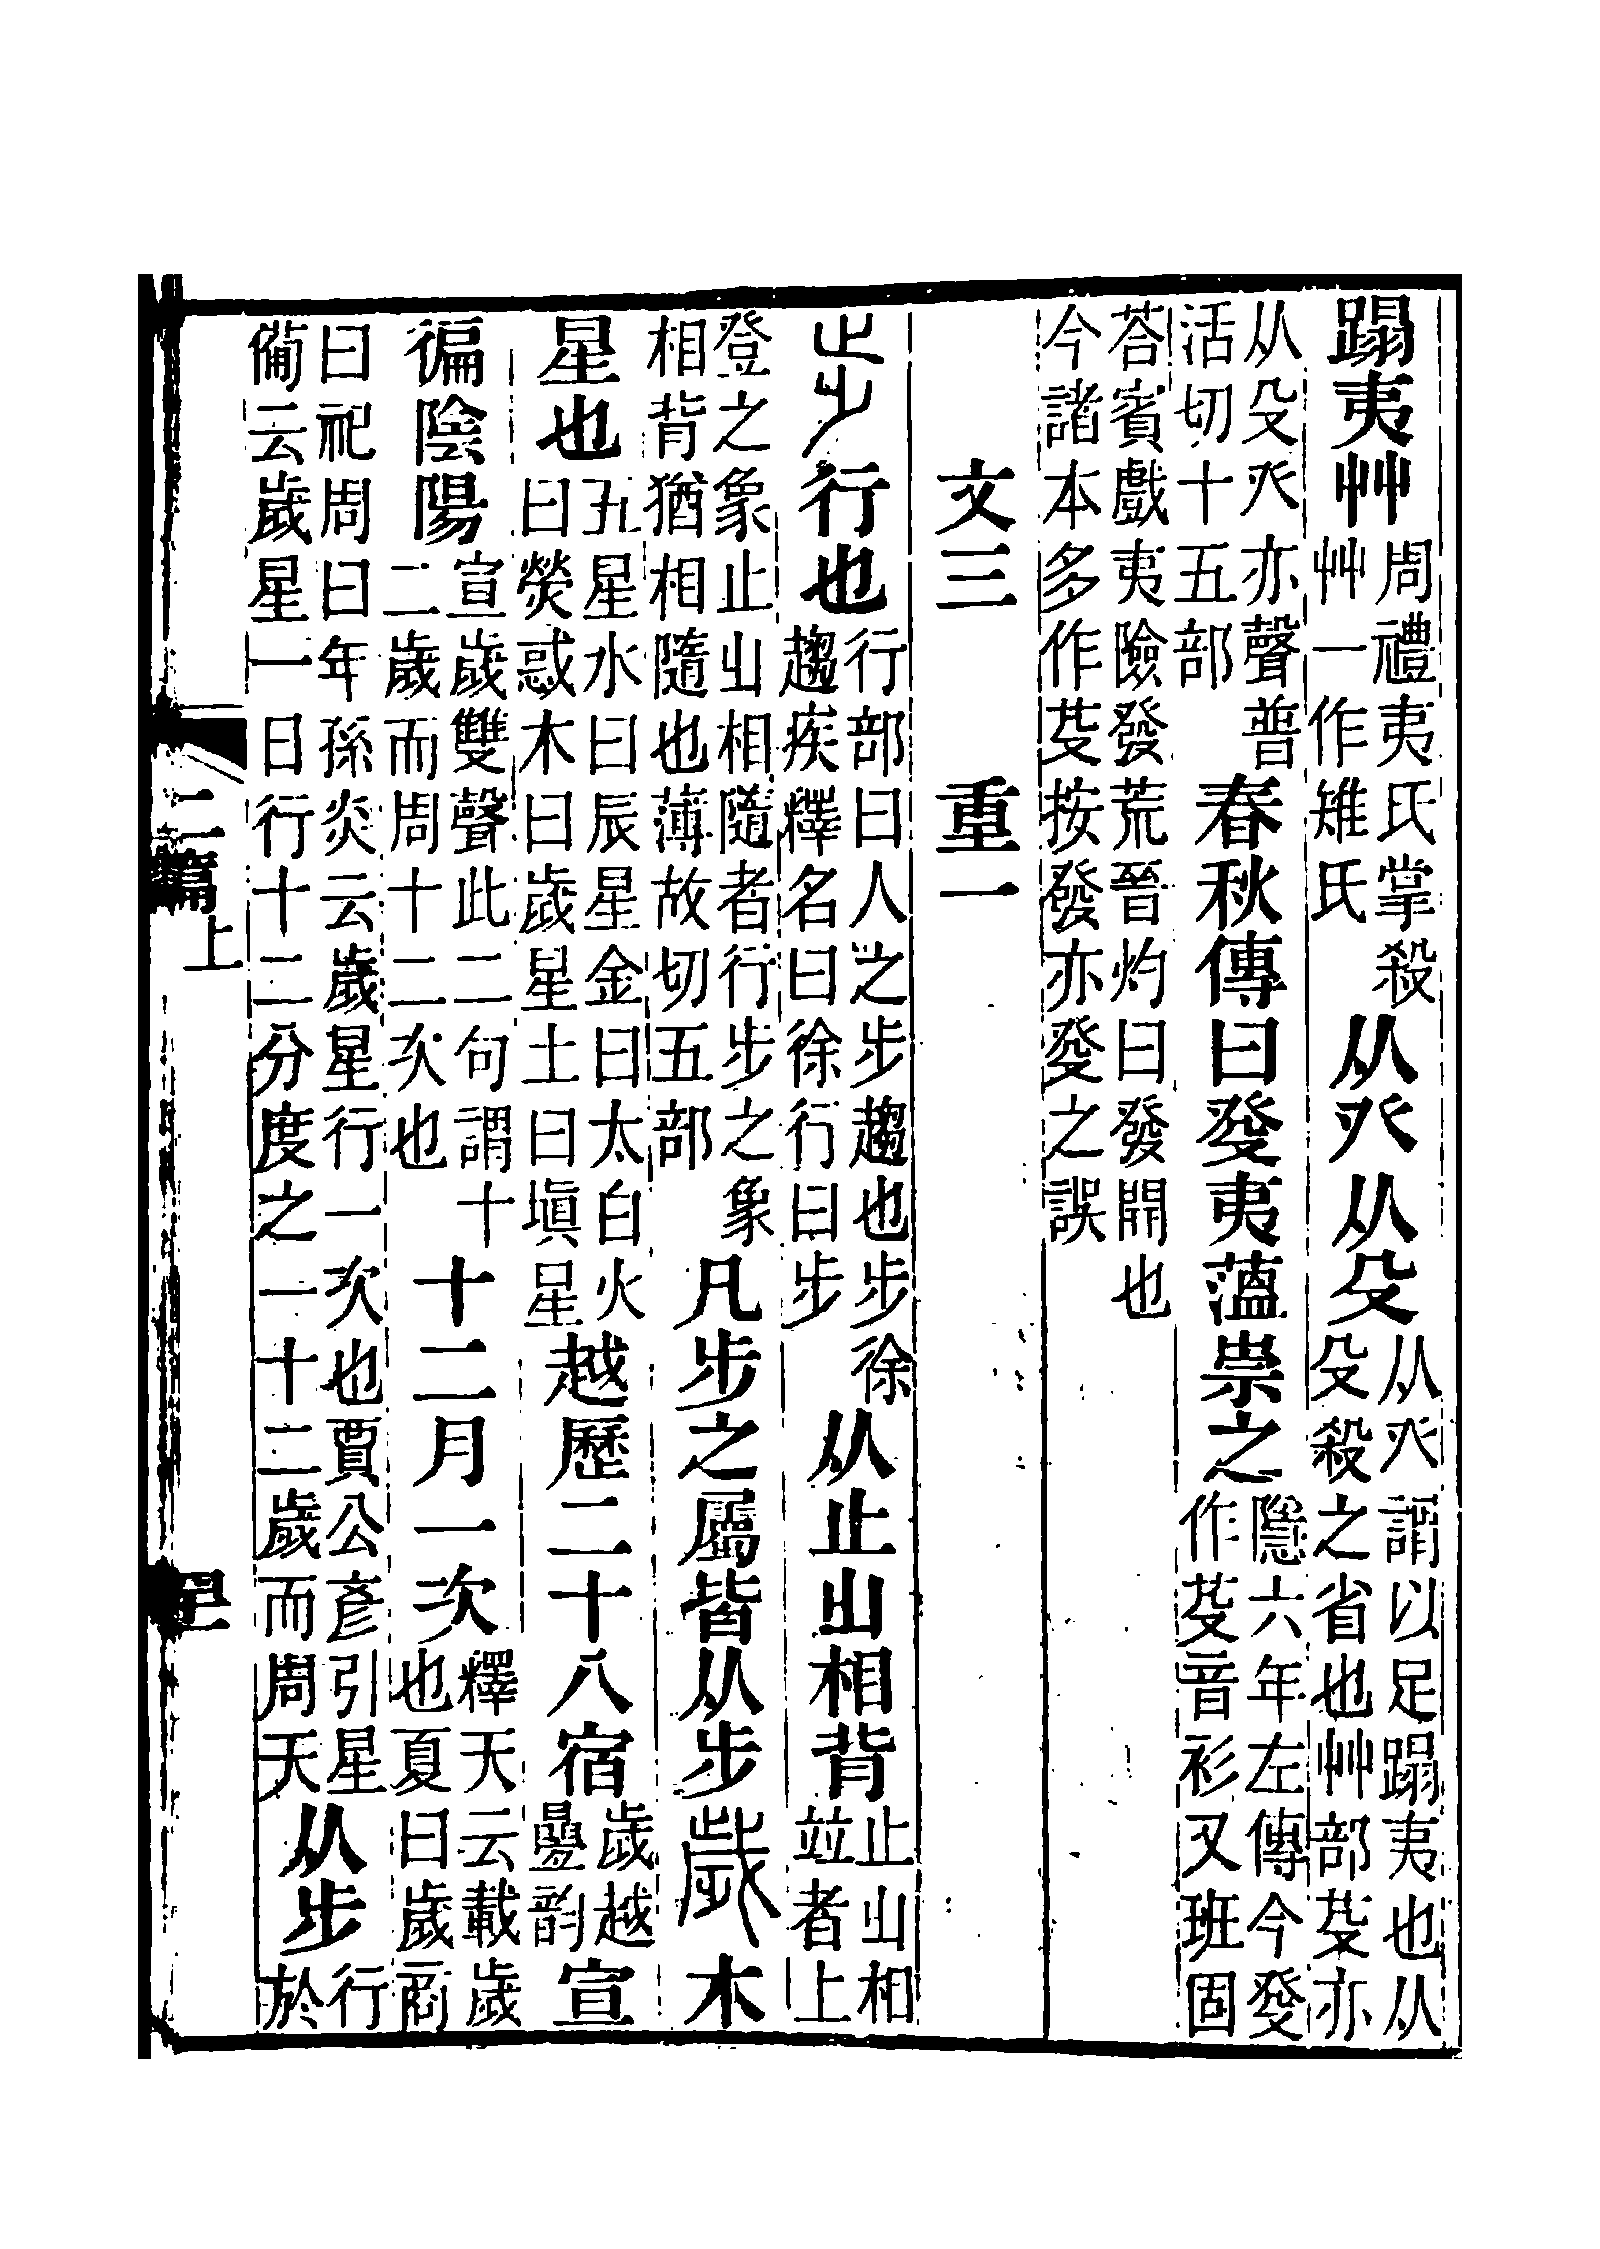 蹋夷艸周禮夷氏掌殺艸一作雉氏从癶从殳从癶謂以足蹋夷也从殳殺之省也艸部芟亦
从殳癶亦聲普活切十五部春秋傳曰癹夷蕰崇之隱六年左傳今癹作芟音衫又班固
荅賓戲夷險發荒晉灼曰發開也今諸本多作芟按發亦癹之誤
文三　重一
步行也行部曰人之步趨也步徐趨疾釋名曰徐行曰步从止𣥂相背止𣥂相竝者上
登之象止𣥂相隨者行步之象相背猶相隨也薄故切五部凡步之屬皆从步歲木
星也五星水曰辰星金曰太白火曰熒惑木曰歲星土曰塡星越歷二十八宿歲越疊韵宣
徧陰陽宣歲雙聲此二句謂十二歲而周十二次也十二月一次釋天云載歲也夏曰歲商
曰祀周曰年孫炎云歲星行一次也賈公彥引星備云歲星一日行十二分度之一十二歲而周天从步行於
二篇上